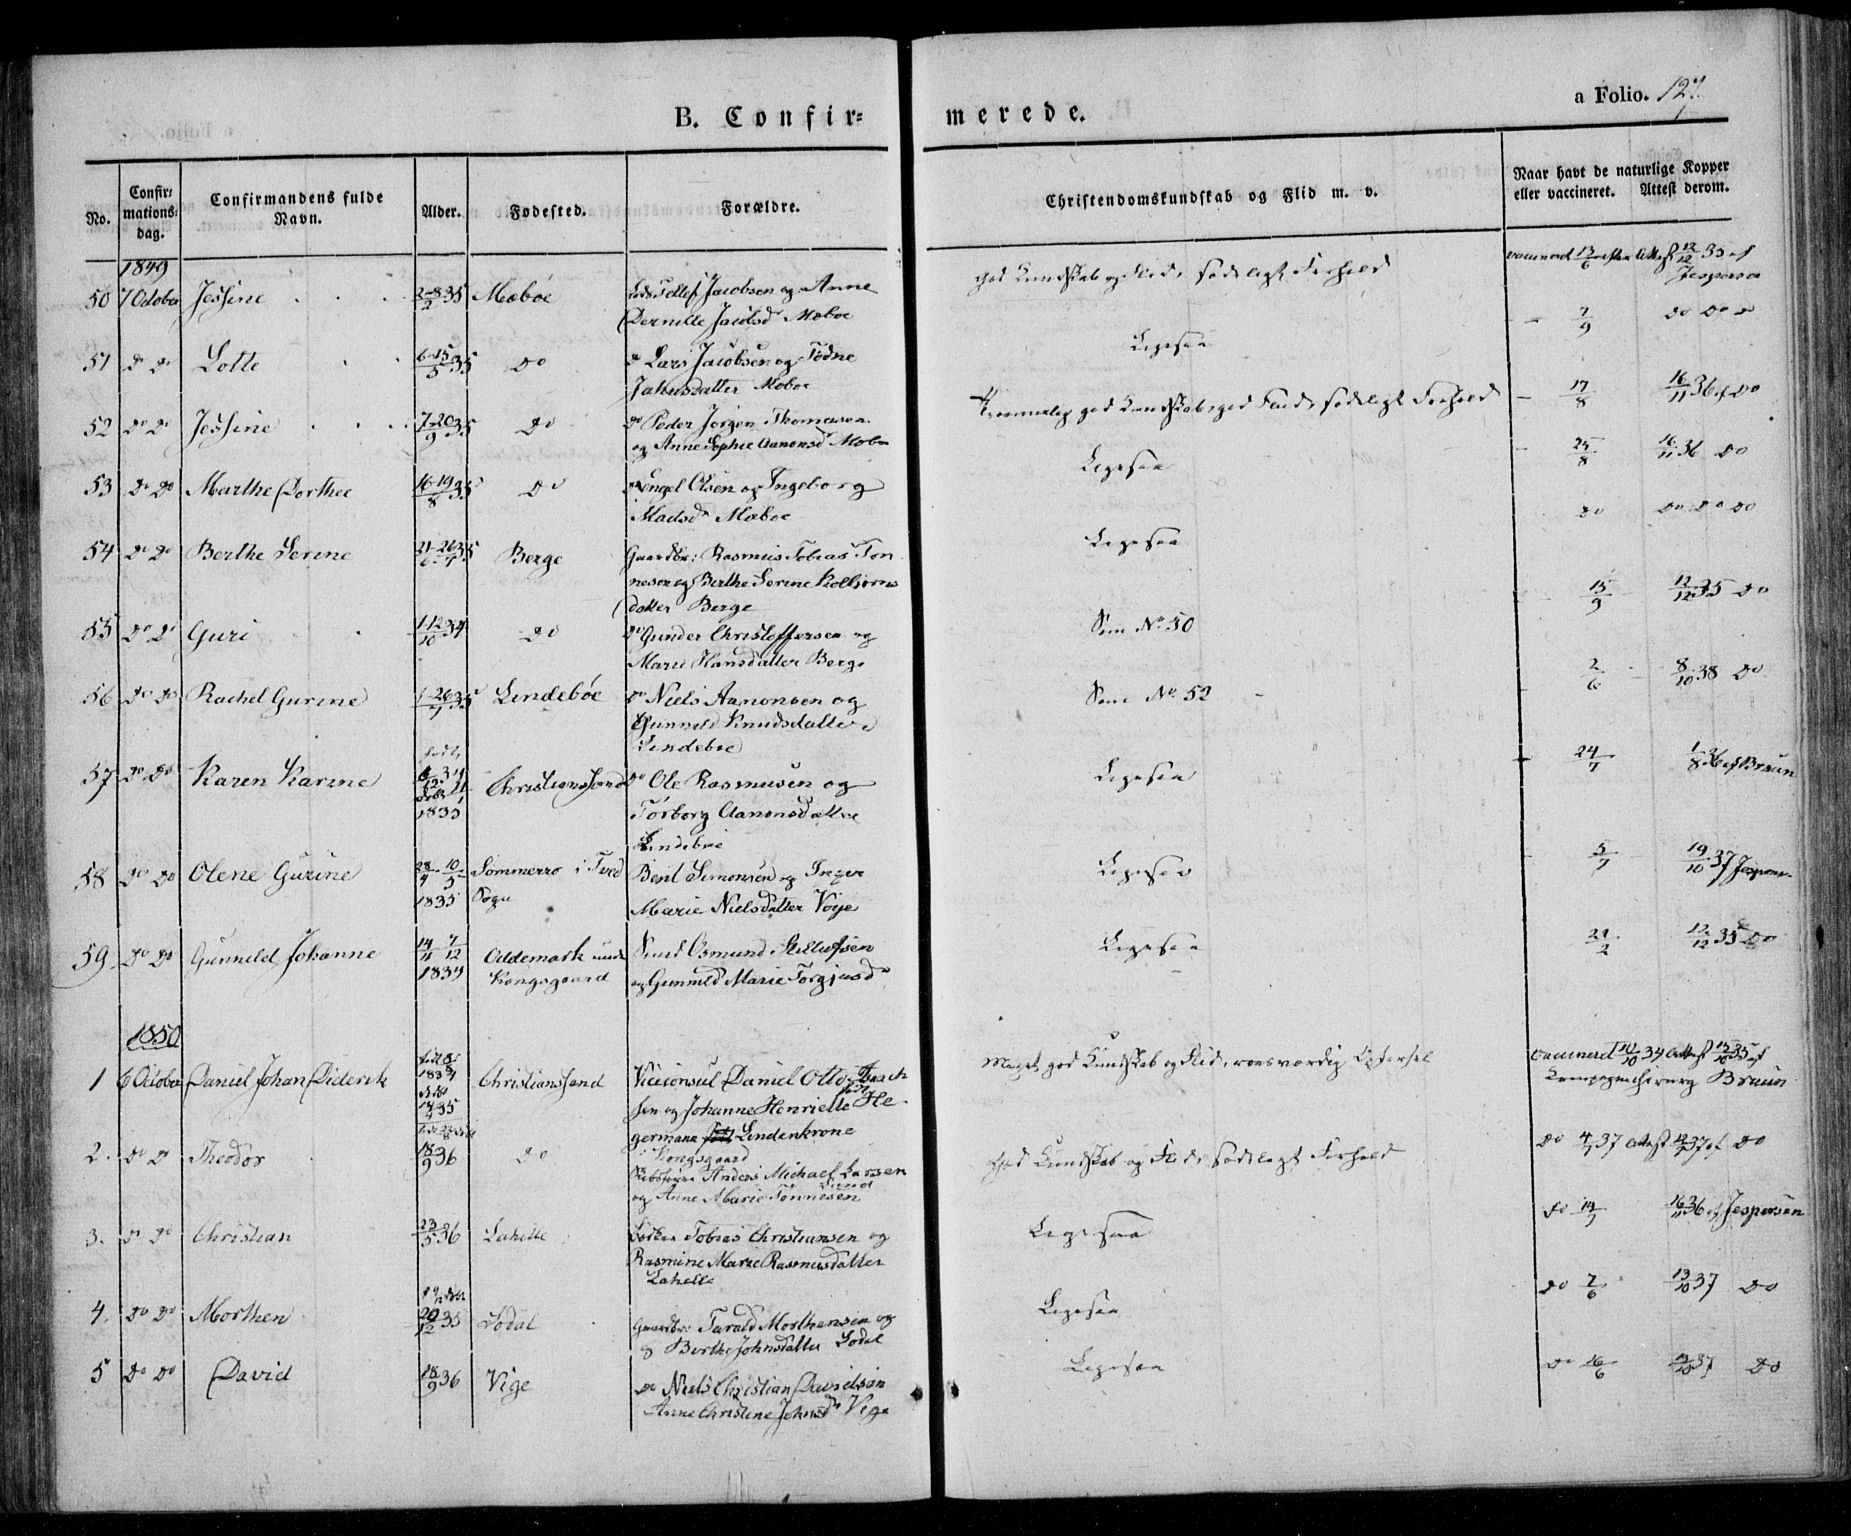 a Folio. 127.
B. Confir=
merede.
No.
Confir=
mations=
dag.
Confirmandens fulde
Navn.
Alder.
Fødested.
Forældre.
Christendomskundskab og Flid m. v.
Naar havt de naturlige Kopper
eller vaccineret. Attest derom.
1849
50 7 October Jessine 2-8 35 Mæbøe Tellef Jacobsen og Anne
2
Pernille Jacobsd Mæboe
God Kundskab og Flid, sædeligt Forhold
vaccineret 13/6 Attest 12/12 35 af
Jespersen
51 do do Lotte 6-15 35 do do Lars Jacobsen og Todne
5
Jacobsdatter Mæboe
Ligesaa
7/9 do do
52 do do Jessine 7-20 35 do do Peder Jørgen Thomassen
9
og Anne Sophie Aanonsd Mæbøe
Temmelig god Kundskab, god Flid, sædeligt Forhold
17/8 16/11 36 af do
53 do do Marthe Dorthee 16-19 35 do Engel Olsen og Ingeborg
8
Madsd Mæboe
Ligesaa
25/8 16/11 36 do
54 do do Berthe Serine 35 Berge Gaardbr: Rasmus Tobias Tøn
nesen og Berthe Serine Kolbjørns
datter Berge
Ligesaa
do do do do
55 do do Guri 1-12 34 do do Gunder Christoffersen og
10
Marie Hansdatter Berge
Som No 50
15/9 12/12 35 do
56 do do Rachel Gurine 1-26 35 Lindebøe do Niels Aanonsen og
7
Gunnild Knudsdatter
Lindeboe
Som No 52
2/6 8/10 38 do
57 do do Karen Karine 34 Christianssand do Ole Rasmussen og
1835
Torborg Aanonsdatter
Lindeboe
Ligesaa
24/7 1/8 36 af Bruun
58 do do Olene Gurine 28/4 10/5 Sommerro i Tved Bent Simonsen og Inger
1835 Sogn
Marie Nielsdatter Voie
Ligesaa
5/7 19/10 37 Jespersen
59 do do Gunnild Johanne 14/11 7/12 Oddemark under Smed Osmund Stellufsen
1834 Kongsgaard
og Gunnild Marie Torgjusd
Ligesaa
21/2 12/12 35 do
1850
1 6 October Daniel Johan Diderik 1834 Christianssand Viceconsul Daniel Otto
35
og Johanne Henriette He-
germann Lindenkrone
Meget god Kundskab og Flid, roesværdig Opførsel
vaccineret 10/10 34 Attest 13/10 35 af
Bruun
2. do do Theodor 18/9 36 do Kongsgaard
Anders Michael Larsen
Lund
og Anne Marie Tønnesen
God Kundskab og Flid, sædeligt Forhold
do 4/7 37 Attest 12/7 37 af do
3. do do Christian 23/5 36 Lahelle Tobias Christiansen og
Rasmine Marie Rasmusdatter
Lahelle
Ligesaa
do 14/7 16/11 36 af Jespersen
4. do do Morthen 20/12 35 Lødal Gaardbr: Tarald Morthensen og
Berthe Johnsdatter Lødal
Ligesaa
do 7/6 13/10 37 do
5 do do David 18/9 36 Vige do Niels Christian Davidsen
Anne Christine Johnsd Vige
Ligesaa
do 16/6 13/10 37 do